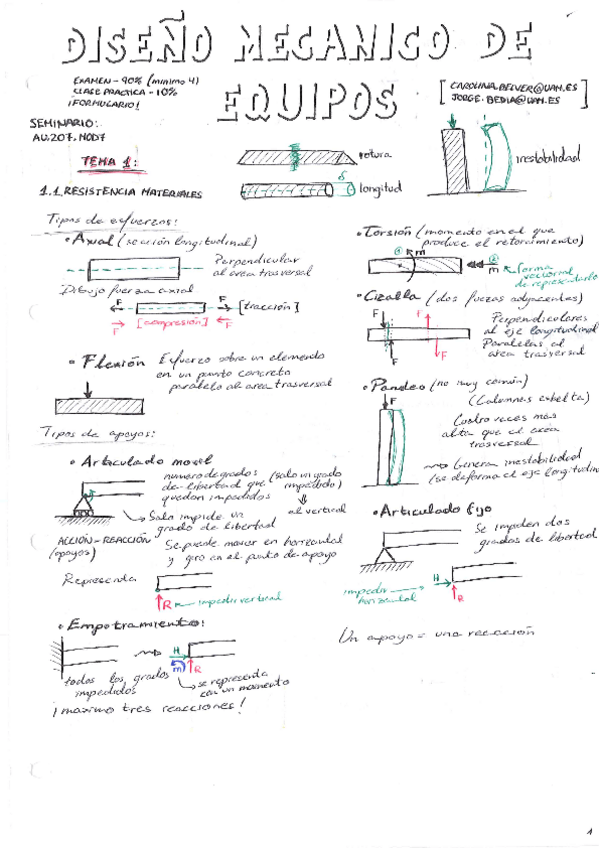 DISEÑO MECANICO DE
EQUIPOS
EXAMEN - 90% (minimo 4)
CLASE PRACTICA - 10%
¡FORMULARIO!
CAROLINA.BELVER@UAM.ES
JORGE.BEDIA@UAM.ES
SEMINARIO:
AU.207.MOD7
TEMA 1:
rotura
longitud
inestabilidad
1.1 RESISTENCIA MATERIALES
Tipos de esfuerzos:
• Axial (sección longitudinal)
Perpendicular
al area trasversal
Dibujo fuerza axial
F F [tracción]
F [compresión] F
• Flexión Esfuerzo sobre un elemento
en un punto concreto
paralelo al area trasversal
F
• Torsión (momento en el que
produce el retorcimiento)
m m
forma
vectorial
de representarlo
• Cizalla (dos fuerzas adyacentes)
F F
F F
Perpendiculares
al eje longitudinal
Paralelas al
area trasversal
• Pandeo (no muy común)
(Columnas esbelta)
F
Cuatro veces más
alta que el area
trasversal
Genera inestabilidad
(se deforma el eje longitudin
Tipos de apoyos:
• Articulado movil
numero de grados (solo un grado
de libertad que impedido)
quedan impedidos
al vertical
Solo impide un
grado de libertad
ACCIÓN-REACCIÓN
(apoyos)
Se puede mover en horizontal
y giro en el punto de apoyo
Representa
R impedir vertical
• Articulado fijo
Se impiden dos
grados de libertad
impedir
horizontal
H
R
• Empotramiento:
H
m
R
todos los grados
impedidos
se representa
con un momento
¡maximo tres reacciones!
Un apoyo = una reacción
1